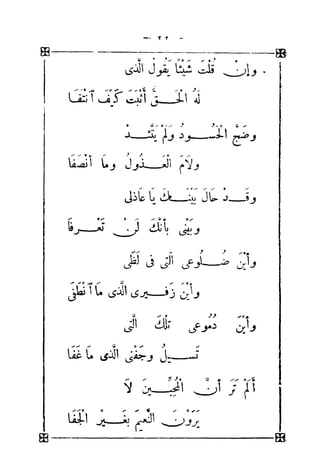 — ٢٢ —
. وإنْ قُلْتَ شَيْئًا يَقُولُ الَّذى
لَهُ الحَقُّ أَثْبَتَ كَيْفَ ٱنْتَفَا
وضَجَّ الحَسُودُ ولَمْ يَتَّئِدْ
ولَامَ العَذُولُ وما أَنْصَفَا
وقَدْ حَالَ بَيْنَكَ يا عَاذِلِى
وبَيْنِى بأَنَّكَ لَنْ تَعْرِفَا
وأَيْنَ ضُلُوعِى الَّتِى فى لَظًى
وأَيْنَ زَفِيرِى الَّذى مَا ٱنْطَفَى
وأَيْنَ دُمُوعِى تِلْكَ الَّتِى
تَسِيلُ وجَفْنِى الَّذى مَا غَفَا
أَلَمْ تَرَ أَنَّ المُحِبِّينَ لَا
يَرَوْنَ النَّعِيمَ بِغَيْرِ الجَفَا